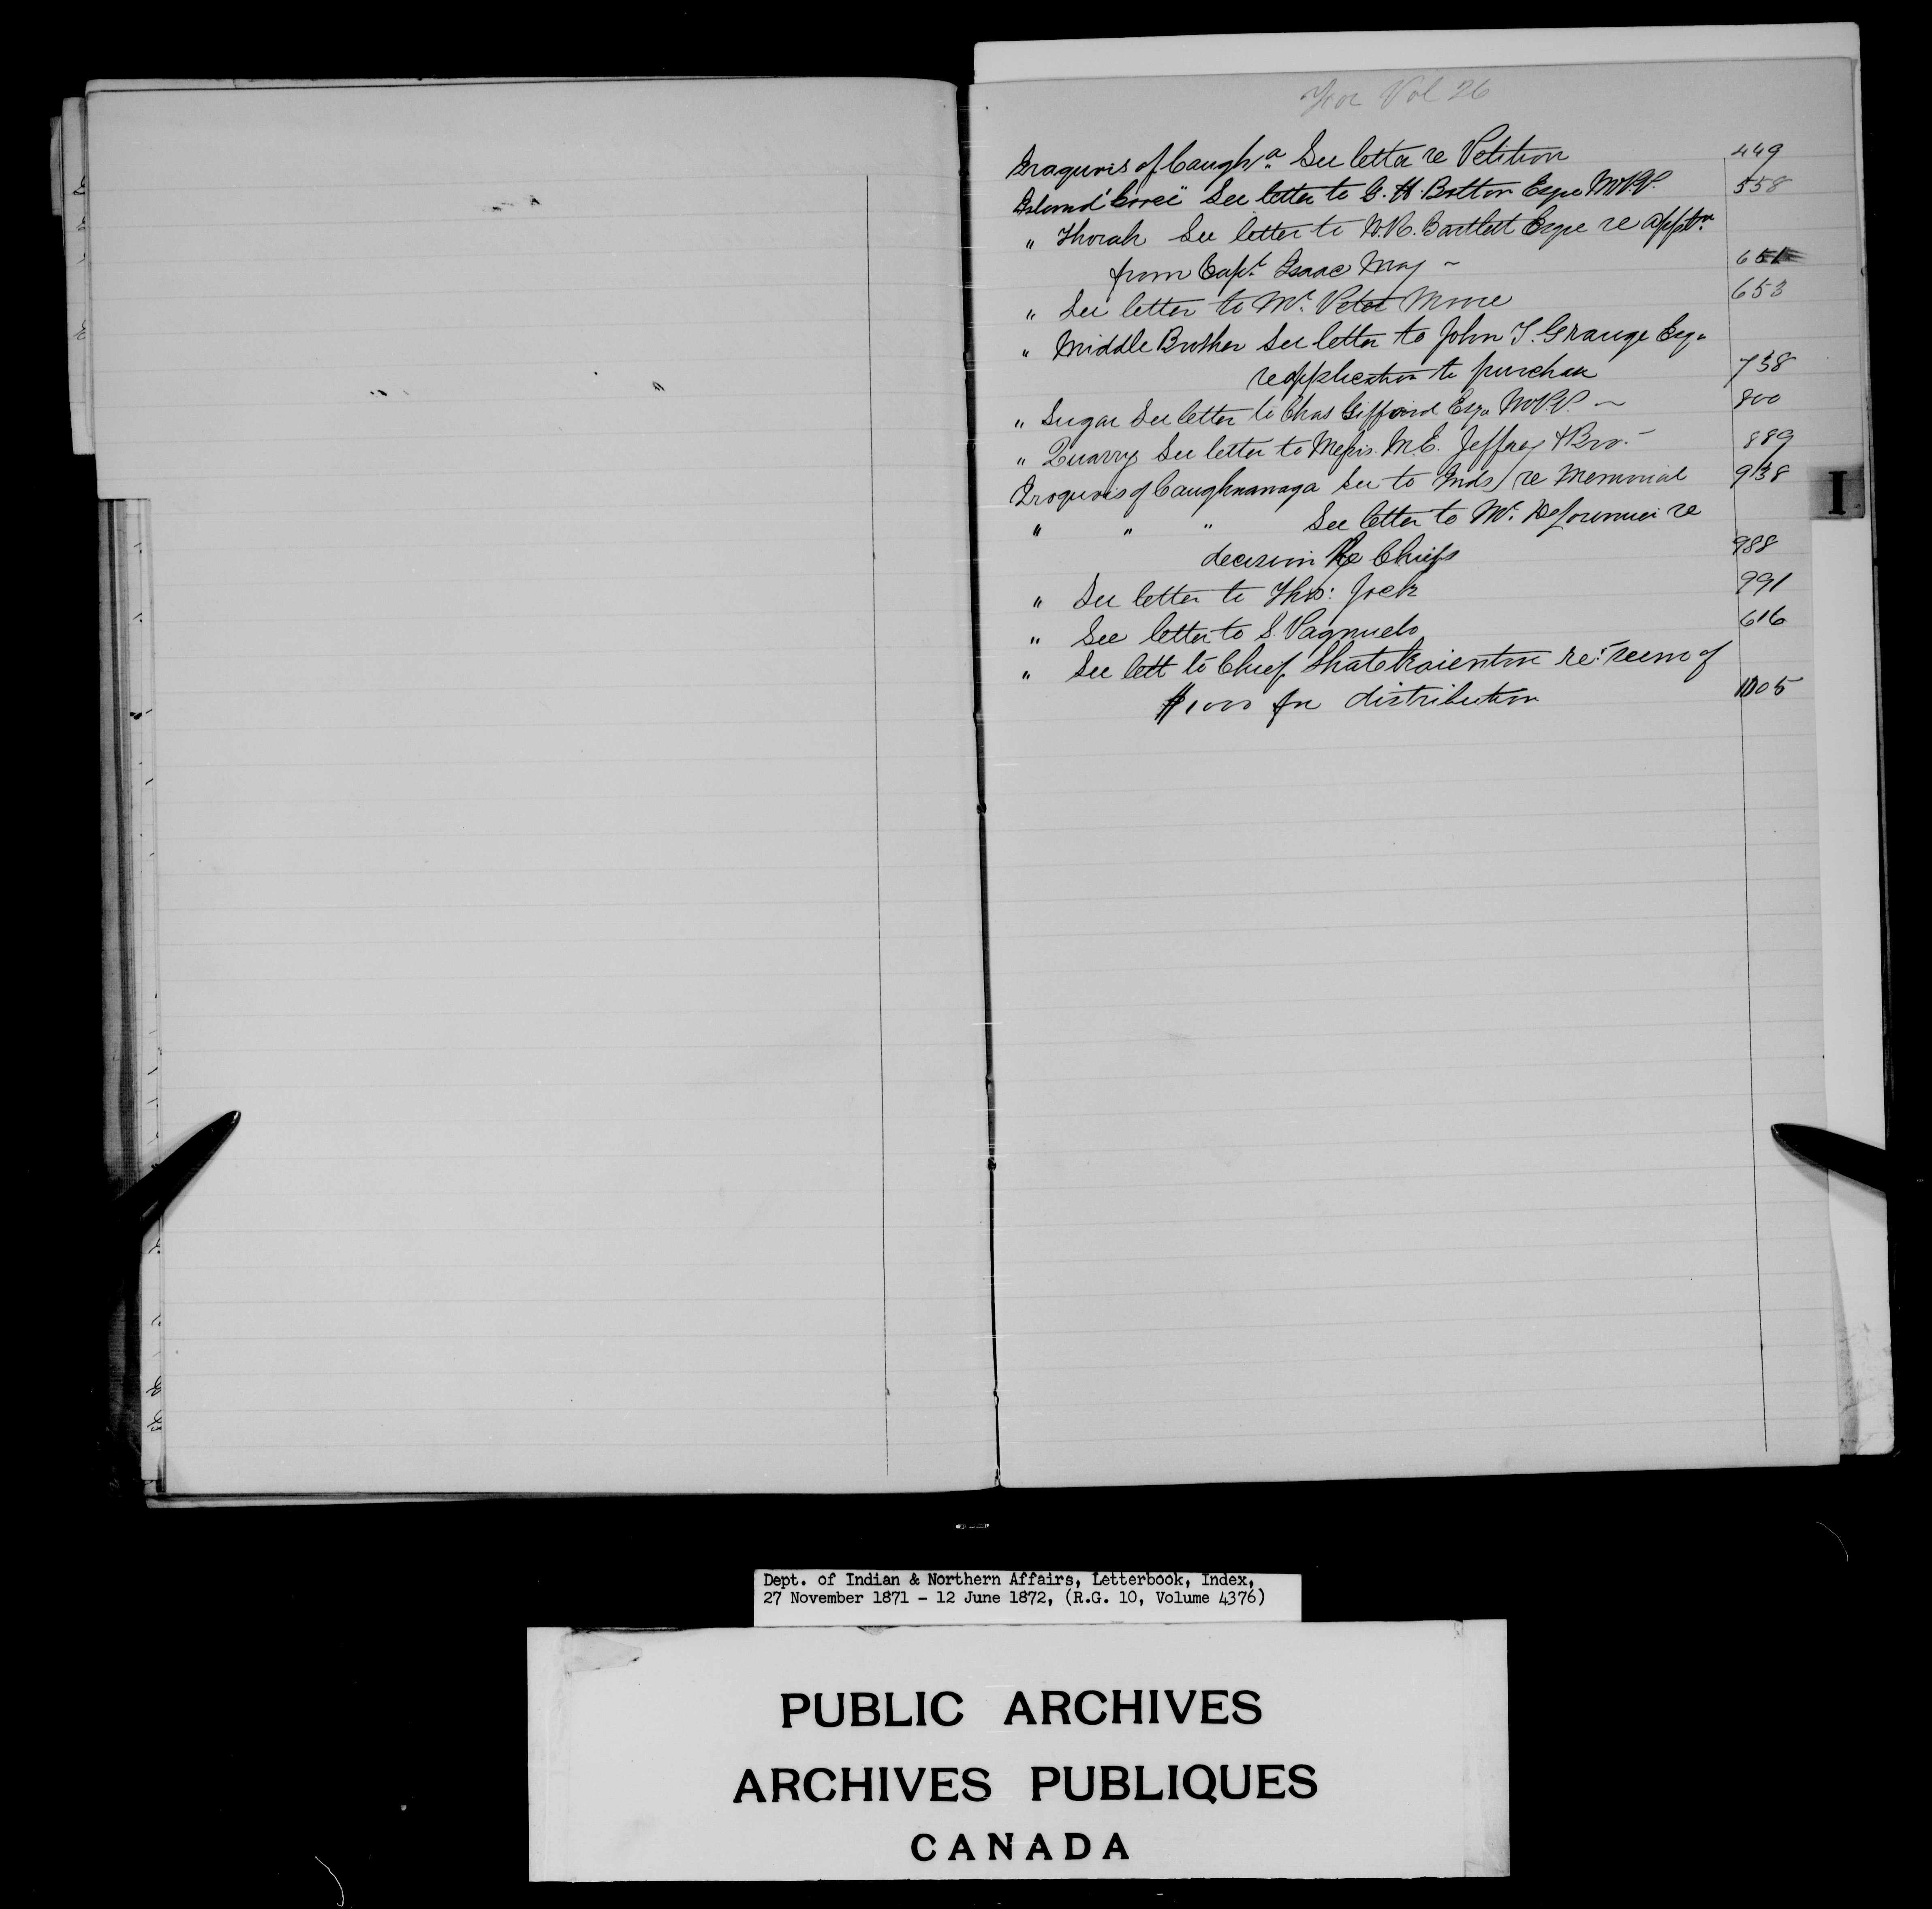 For Vol 26
Iroquois of Caughn.a See letter re Petition 449
Island "Coree" See letter to G. H. Boston Esqre M.P.P. 558
" Thorah See letter to W.R. Bartlett Esqre re apptn.
from Capt. Isaac May ~ 651
" See letter to Mr. Peter Moore 653
" Middle Brother See letter to John T. Grange Esqr
re application to purchase 738
" Sugar See letter to Chas Gifford Esqr M.P.P. ~ 800
" Quarry See letter to Messrs. M.C. Jeffrey & Bro. - 889
Iroquois of Caughnawaga See to Inds / re Memorial 938
" " " See letter to Mr. Delorimier re
decision re Chiefs 988
" See letter to Thos: Jock 991
" See letter to S. Pagnuelo 616
" See lett to Chief Shatekaienton re: seems of
$1000 for distribution 1005
I
Dept. of Indian & Northern Affairs, Letterbook, Index,
27 November 1871 - 12 June 1872, (R.G. 10, Volume 4376)
PUBLIC ARCHIVES
ARCHIVES PUBLIQUES
CANADA